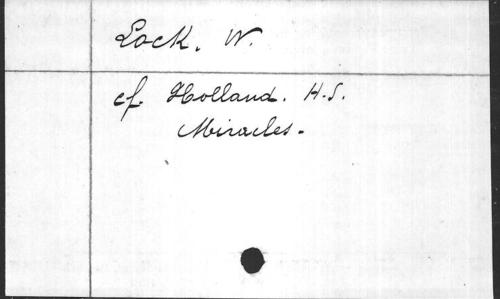 Lock. W.
cf. Holland. H.S.
Miracles.